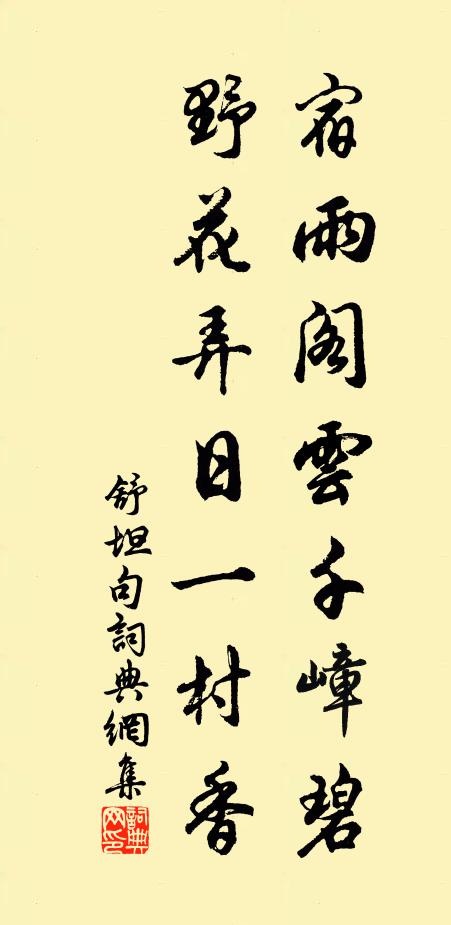 宿雨阁雲千嶂碧
野花弄日一村香
舒坦句詞典網集
詞典網印